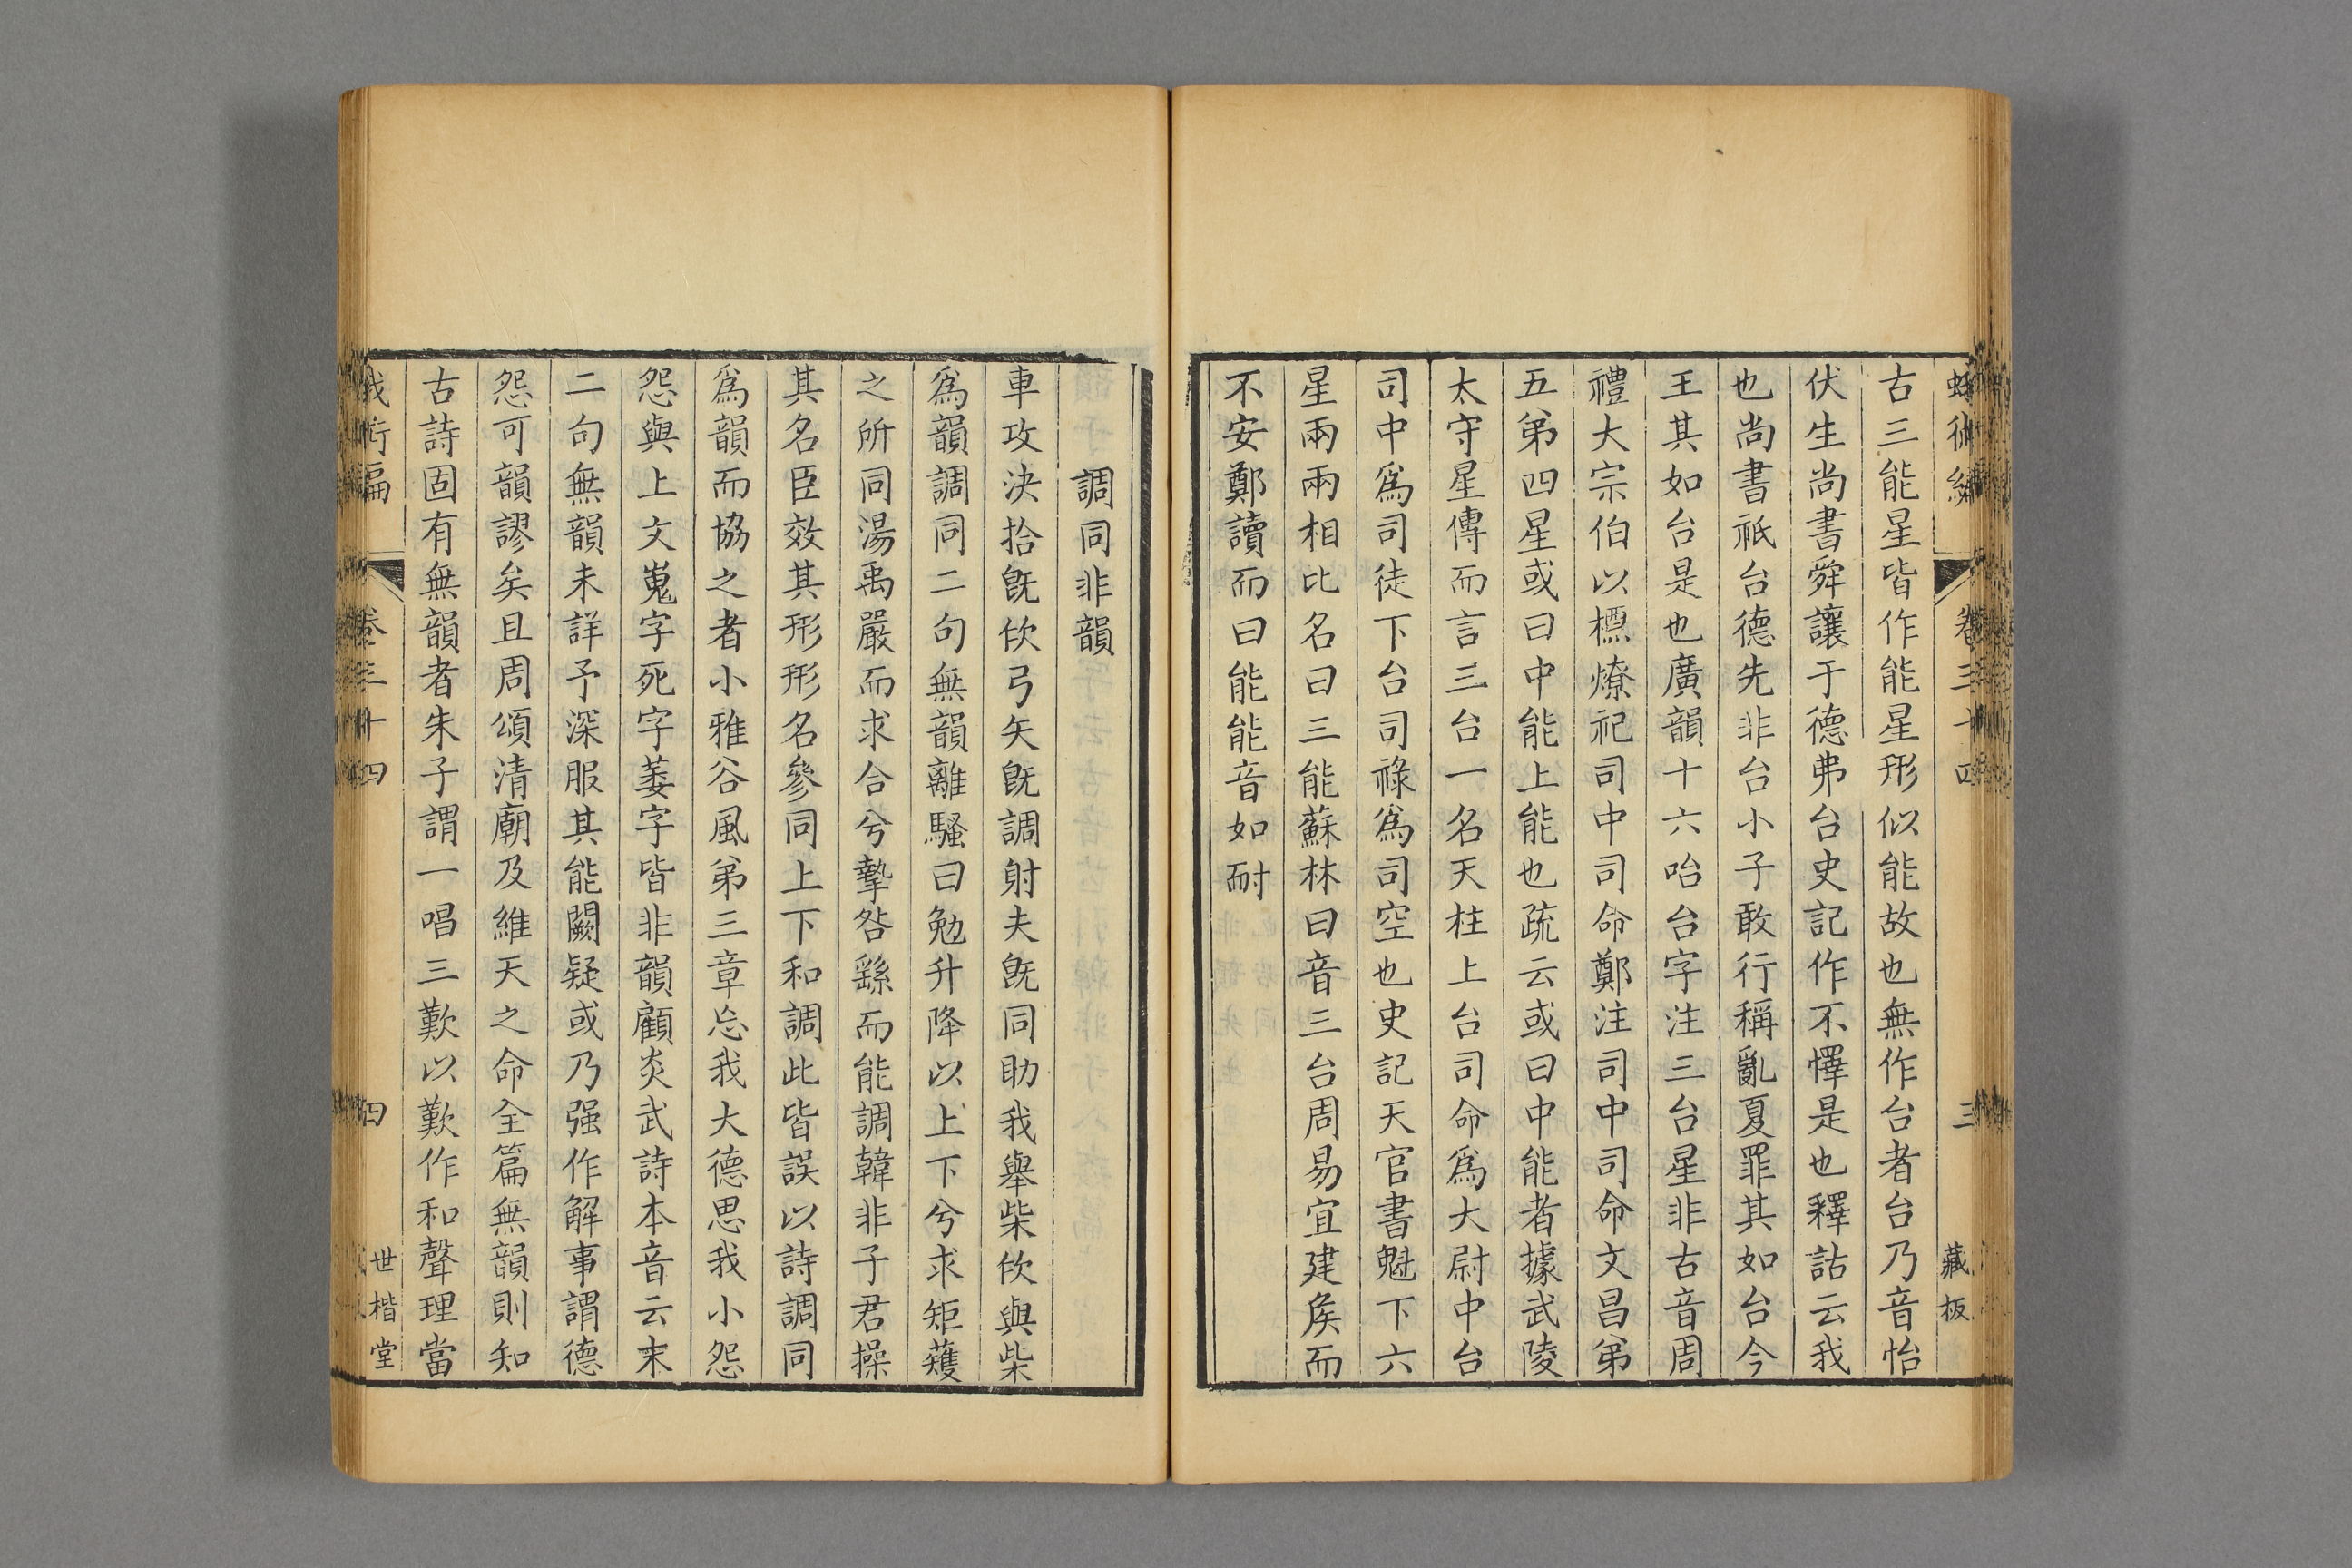 蛾術編 卷三十四 三 藏板
古三能星皆作能星形似能故也無作台者台乃音怡
伏生尚書舜讓于德弗台史記作不懌是也釋詁云我
也尚書祇台德先非台小子敢行稱亂夏罪其如台今
王其如台是也廣韻十六咍台字注三台星非古音周
禮大宗伯以槱燎祀司中司命鄭注司中司命文昌第
五第四星或曰中能上能也疏云或曰中能者據武陵
太守星傳而言三台一名天柱上台司命爲大尉中台
司中爲司徒下台司祿爲司空也史記天官書魁下六
星兩兩相比名曰三能蘇林曰音三台周易宜建侯而
不安鄭讀而曰能能音如耐
調同非韻
車攻決拾旣佽弓矢旣調射夫旣同助我舉柴佽與柴
爲韻調同二句無韻離騷曰勉升降以上下兮求矩蒦
之所同湯禹嚴而求合兮摯咎繇而能調韓非子君操
其名臣效其形形名參同上下和調此皆誤以詩調同
爲韻而協之者小雅谷風第三章忘我大德思我小怨
怨與上文嵬字死字萎字皆非韻顧炎武詩本音云末
二句無韻未詳予深服其能闕疑或乃强作解事謂德
怨可韻謬矣且周頌清廟及維天之命全篇無韻則知
古詩固有無韻者朱子謂一唱三歎以歎作和聲理當
蛾術編 卷三十四 四 世楷堂